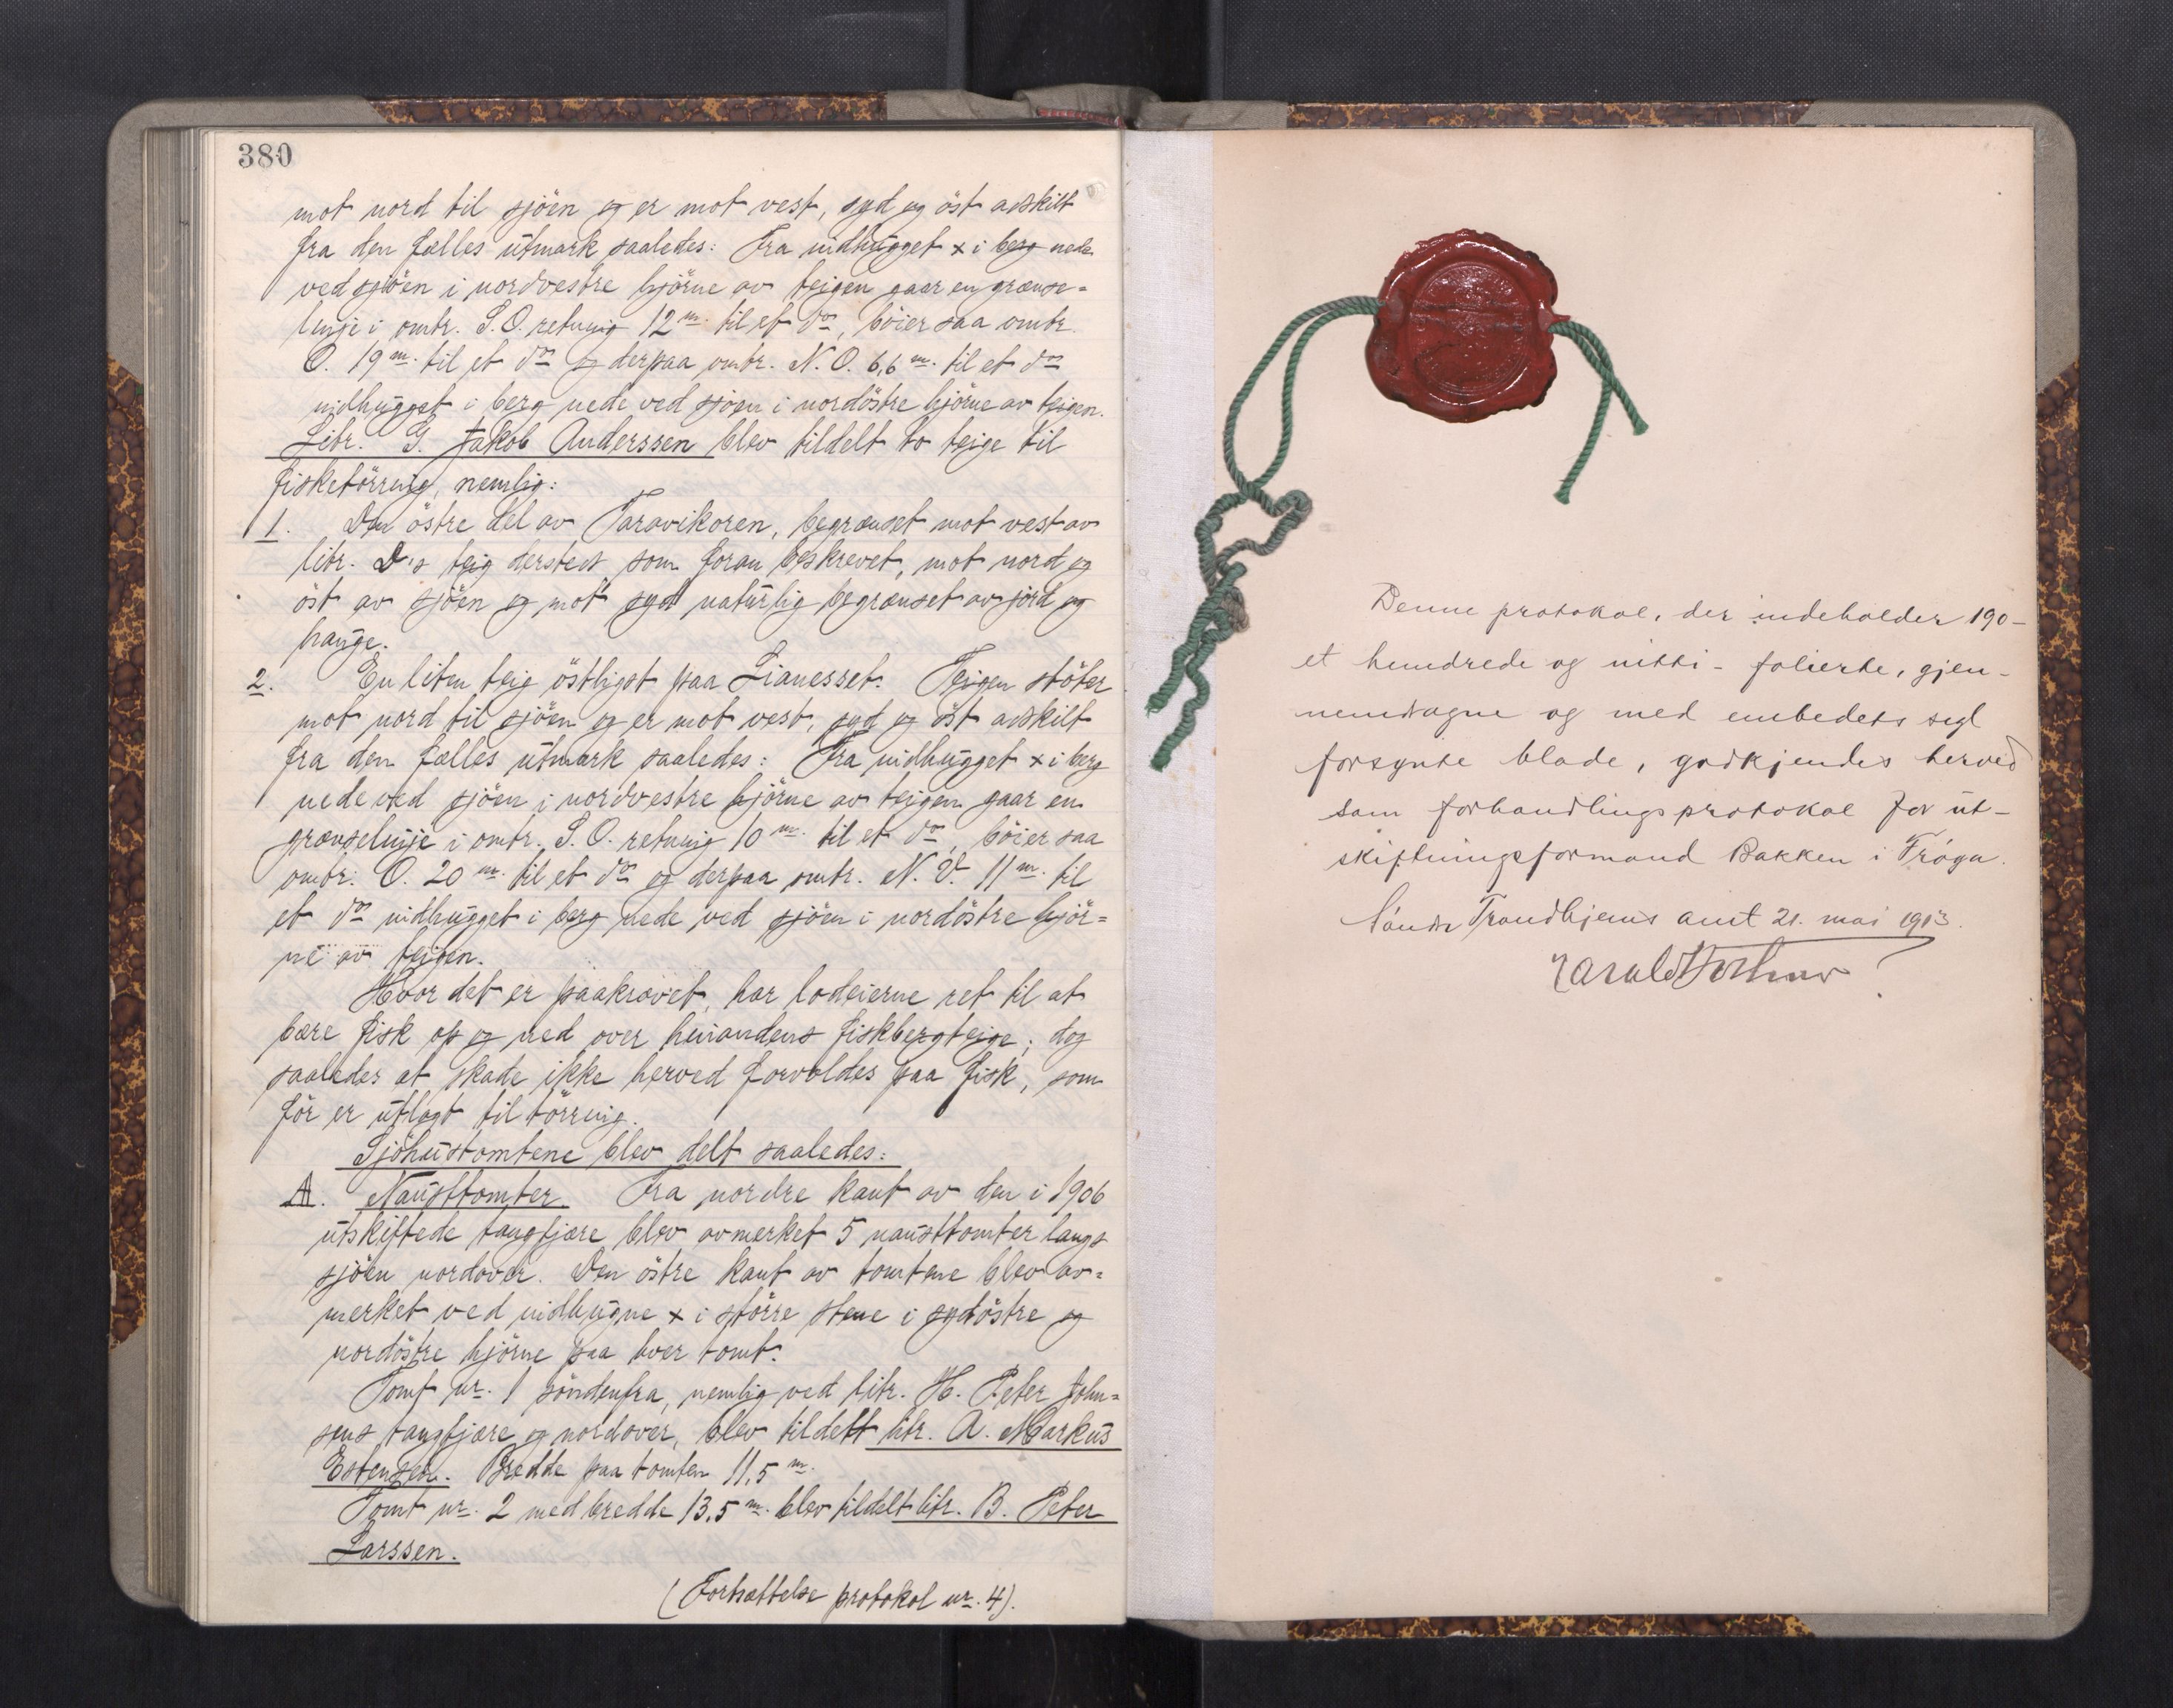 380
mot nord til sjöen og er mot vest, syd og öst adskilt
fra den fælles utmark saaledes: Fra nidhugget x i berg nede
ved sjöen i nordvestre hjörne av teigen gaar en grænse=
linje i omtr. S.O. retning 12 m. til et do, böier saa omtr.
O. 19 m. til et do og derpaa omtr. N.O. 6,6 m. til et do
nidhugget i berg nede ved sjöen i nordöstre hjörne av teigen.
Litr. G. Jakob Anderssen blev tildelt to teige til
fisketörring, nemlig:
1. Den östre del av Taravikoren, begrænset mot vest av
litr. D's teig dersteds som foran beskrevet, mot nord og
öst av sjöen og mot syd naturlig begrænset av jord og
hauge.
2. En liten teig östligst paa Lianesset. Teigen stöter
mot nord til sjöen og er mot vest, syd og öst adskilt
fra den fælles utmark saaledes: Fra nidhugget x i berg
nede ved sjöen i nordvestre hjörne av teigen gaar en
grænselinje i omtr. S.O. retning 10 m. til et do, böier saa
omtr. O. 20 m. til et do og derpaa omtr. N. 11 m. til
et do nidhugget i berg nede ved sjöen i nordöstre hjör=
ne av teigen.
Hvor det er paakrævet, har lodeierne ret til at
bære fisk op og ned over hinandens fiskbergteige; dog
saaledes at skade ikke herved forvoldes paa fisk, som
för er utlagt til törring.
Sjöhustomtene blev delt saaledes:
A. Nausttomter Fra nordre kant av den i 1906
utskiftede tangfjære blev avmerket 5 nausttomter langs
sjöen nordover. Den östre kant av tomtene blev av=
merket ved nidhugne x i större stene i sydöstre og
nordöstre hjörne paa hver tomt.
Tomt nr. 1 söndenfra, nemlig ved litr. H. Peter John=
sens tangfjære og nordover, blev tildelt litr. A. Markus
Estensen. Bredde paa tomten 11,5 m.
Tomt nr. 2 med bredde 13,5 m. blev tildelt litr. B. Peter
Larssen.
(Fortsættelse protokol nr. 4).
Denne protokol, der indeholder 190-
et hundrede og nitti - folierte, gjen-
nemdragne og med embedets segl
forsynte blade, godkjendes herved
som forhandlingsprotokol for ut-
skiftningsformand Bakken i Frøya.
Søndre Trondhjems amt 21. mai 1913.